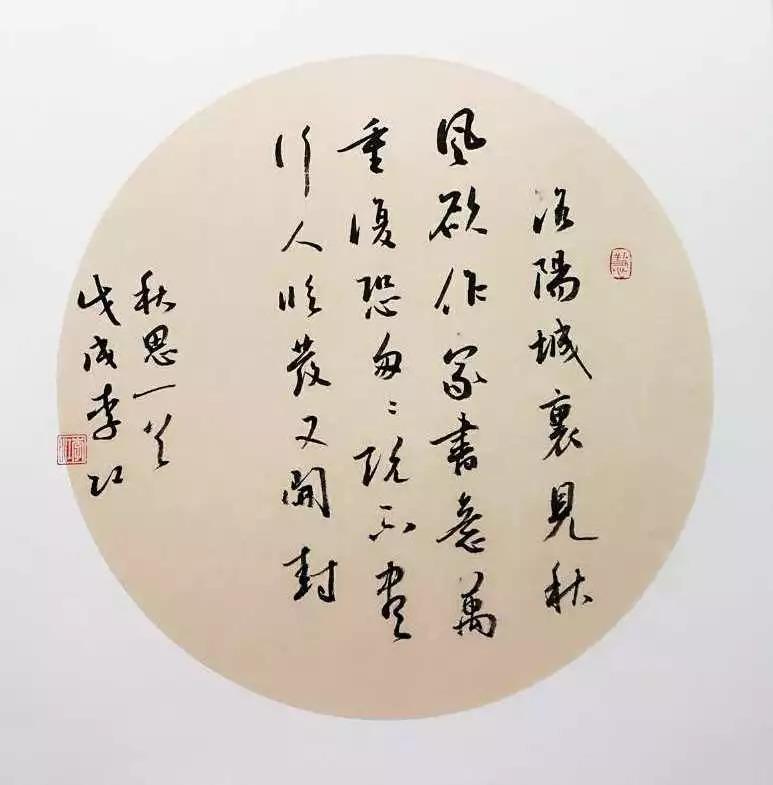 洛陽城裏見秋
風欲作家書意萬
重復恐匆〻説不盡
行人臨發又開封
秋思一首
戊戌李江